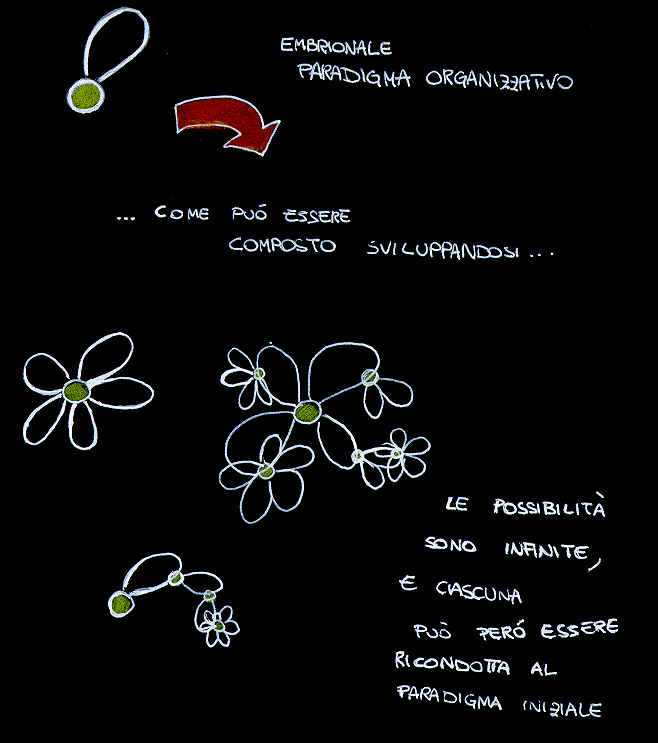 EMBRIONALE
PARADIGMA ORGANIZZATIVO
... COME PUÓ ESSERE
COMPOSTO SVILUPPANDOSI...
LE POSSIBILITÀ
SONO INFINITE,
E CIASCUNA
PUÒ PERÓ ESSERE
RICONDOTTA AL
PARADIGMA INIZIALE